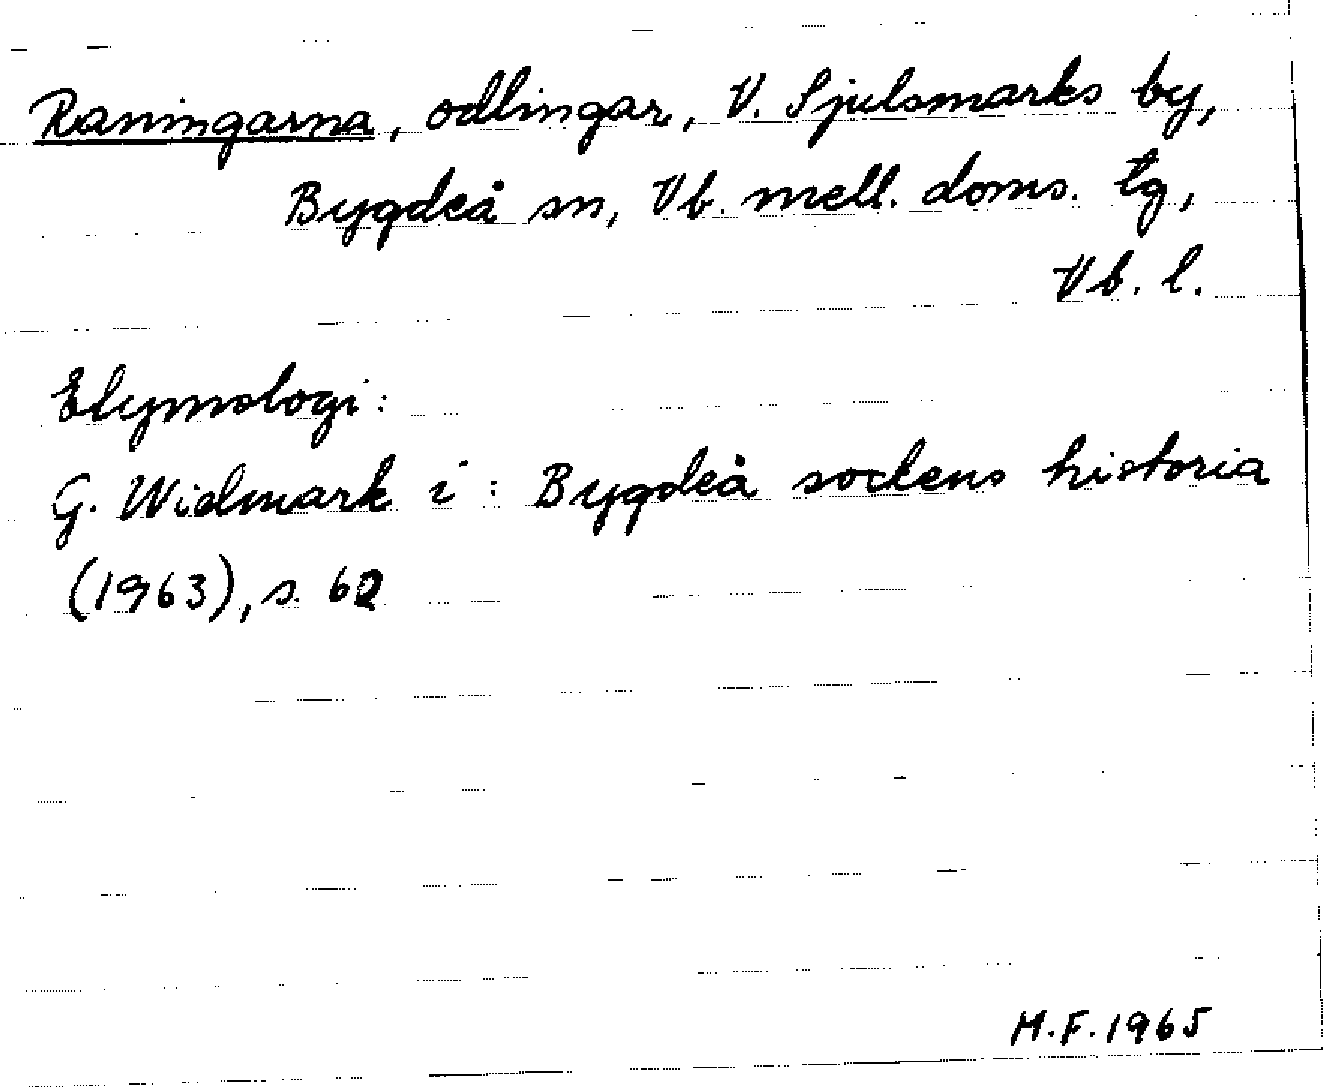 Raningarna, odlingar, V. Sjulsmarks by,
Bygdeå sn, Vb. mell. doms. tg,
Vb. l.
Etymologi:
G. Widmark i: Bygdeå sockens historia
(1963), s. 62
H.F. 1965